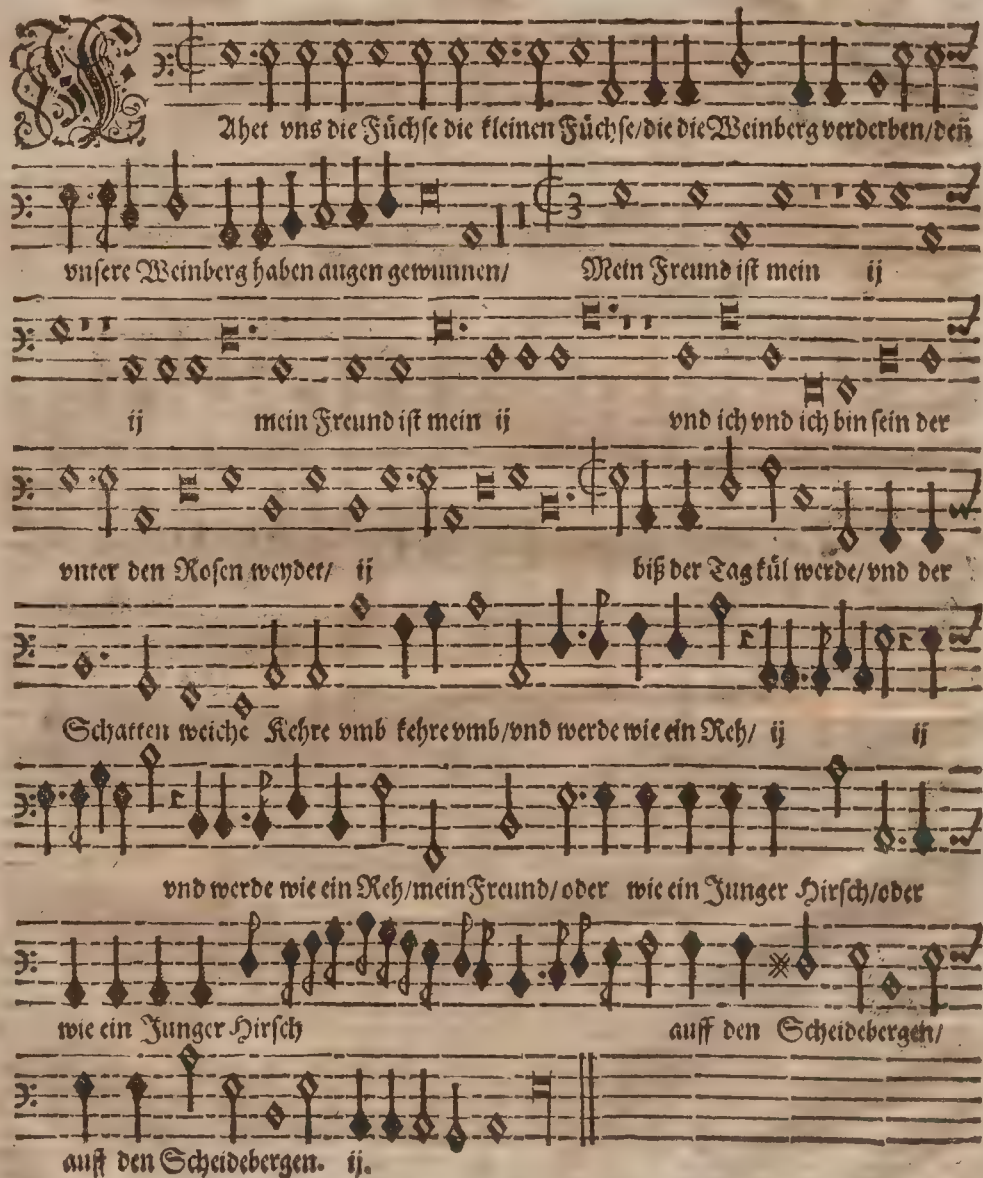 FAhet vns die Füchse die kleinen Füchse/die die Weinberg verderben/deñ
vnsere Weinberg haben augen gewunnen/ Mein Freund ist mein ij
ij mein Freund ist mein ij vnd ich vnd ich bin sein der
vnter den Rosen weydet/ ij biß der Tag kül werde/vnd der
Schatten weiche Kehre vmb kehre vmb/vnd werde wie ein Reh/ ij ij
vnd werde wie ein Reh/mein Freund/oder wie ein Junger Hirsch/oder
wie ein Junger Hirsch auff den Scheidebergen/
auff den Scheidebergen. ij.